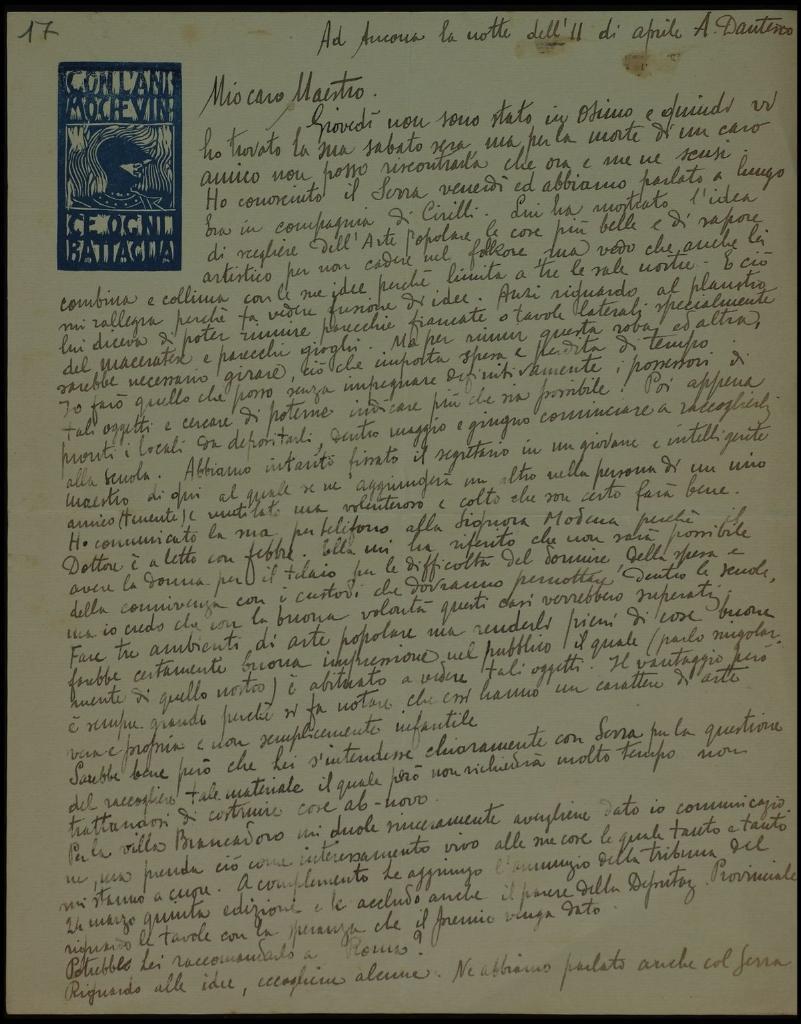 17
Ad Ancona la notte dell'11 di aprile A. Dantesco
CON L'ANI
MO CHE VIN
CE OGNI
BATTAGLIA
Mio caro Maestro.
Giovedì non sono stato in Osimo e quindi vi
ho trovato la sua sabato sera, ma per la morte di un caro
amico non posso riscontrarla che ora e me ne scusi.
Ho conosciuto il Serra venerdì ed abbiamo parlato a lungo
Era in compagnia di Cirilli. Lui ha mostrato l'idea
di scegliere dell'Arte Popolare le cose più belle e di sapore
artistico per non cadere nel folklore, ma vedo che anche lei
combina e collima con le sue idee perchè limita a tre le sale nostre. E ciò
mi rallegra perchè fa vedere fusione di idee. Anzi riguardo al plaustro
lui diceva di poter riunire parecchie fiancate o tavole laterali specialmente
del maceratese e parecchi gioghi. Ma per riunir questa roba, ed altra,
sarebbe necessario girare, ciò che importa spesa e perdita di tempo.
Io farò quello che posso senza impegnare definitivamente i possessori di
tali oggetti e cercare di poterne indicare più che sia possibile. Poi appena
pronti i locali da depositarli, dentro maggio e giugno cominciare a raccoglierli
alla scuola. Abbiamo intanto fissato il segretario in un giovane e intelligente
maestro di qui al quale se ne aggiungerà un altro nella persona di un mio
amico (tenente) e mutilato ma volenteroso e colto che son certo farà bene.
Ho comunicato la sua per telefono alla Signora Modena perchè il
Dottore è a letto con febbre. Ella mi ha riferito che non sarà possibile
avere la donna per il telaio per le difficoltà del dormire, della spesa e
della convivenza con i custodi che dovranno pernottare dentro le scuole,
ma io credo che con la buona volontà questi casi verrebbero superati.
Fare tre ambienti di arte popolare ma renderli pieni di cose buone
farebbe certamente buona impressione nel pubblico il quale (parlo singolar-
mente di quello nostro) è abituato a vedere tali oggetti. Il vantaggio però
è sempre grande perchè si fa notare che essi hanno un carattere di arte
vera e propria e non semplicemente infantile
Sarebbe bene però che Lei s'intendesse chiaramente con Serra per la questione
del raccogliere tale materiale il quale però non richiederà molto tempo non
trattandosi di costruire cose ab-novo.
Per la villa Brancadoro mi duole sinceramente avergliene dato io comunicazio-
ne, ma prenda ciò come interessamento vivo alle sue cose le quali tanto e tanto
mi stanno a cuore. A complemento Le aggiungo l'annunzio della tribuna del
24 marzo quinta edizione e le accludo anche il parere della Deputaz. Provinciale
riguardo le tavole con la speranza che il premio venga dato.
Potrebbe Lei raccomandarlo a Roma?
Riguardo alle idee, eccogliene alcune. Ne abbiamo parlato anche col Serra